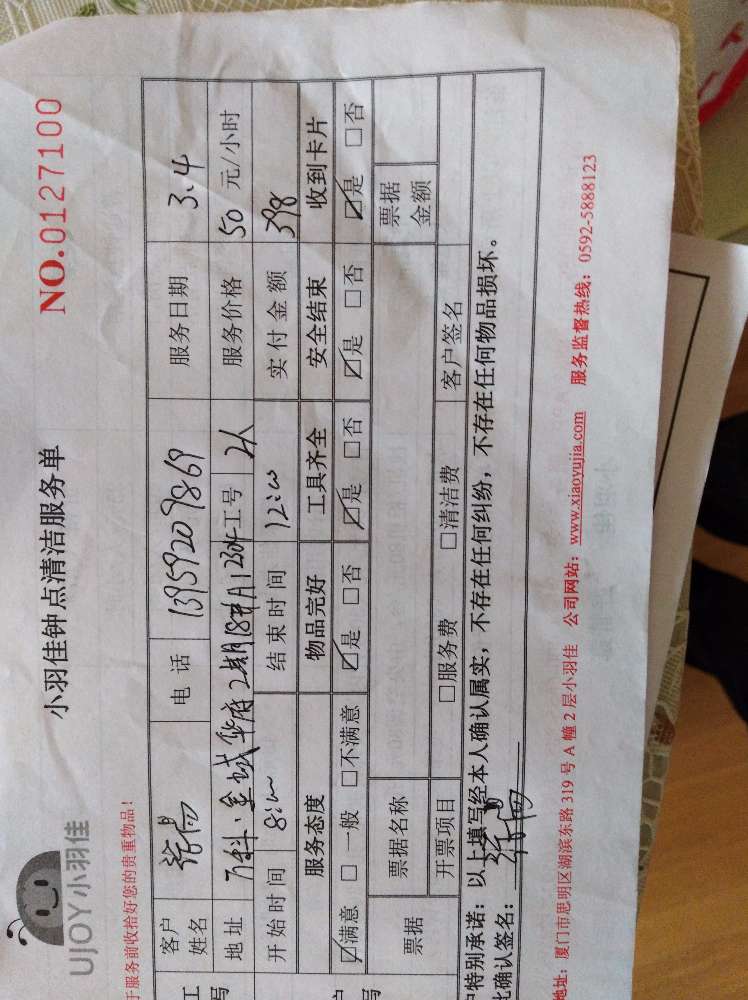 UJOY小羽佳
小羽佳钟点清洁服务单
NO.0127100
于服务前收拾好您的贵重物品！
客户姓名 电话 13959209869 服务日期 3.4
地址 万科·金域华府2期18#A1230 工号 2人 服务价格 50 元/小时
开始时间 8:00 结束时间 12:00 实付金额 398
服务态度 物品完好 工具齐全 安全结束 收到卡片
☑满意 □一般 □不满意 ☑是 □否 ☑是 □否 ☑是 □否 ☑是 □否
票据 票据名称 票据金额
开票项目 □服务费 □清洁费 客户签名
特别承诺：以上填写经本人确认属实，不存在任何纠纷，不存在任何物品损坏。
比确认签名：
地址：厦门市思明区湖滨东路 319 号 A 幢 2 层小羽佳 公司网站：www.xiaoyujia.com 服务监督热线：0592-5888123